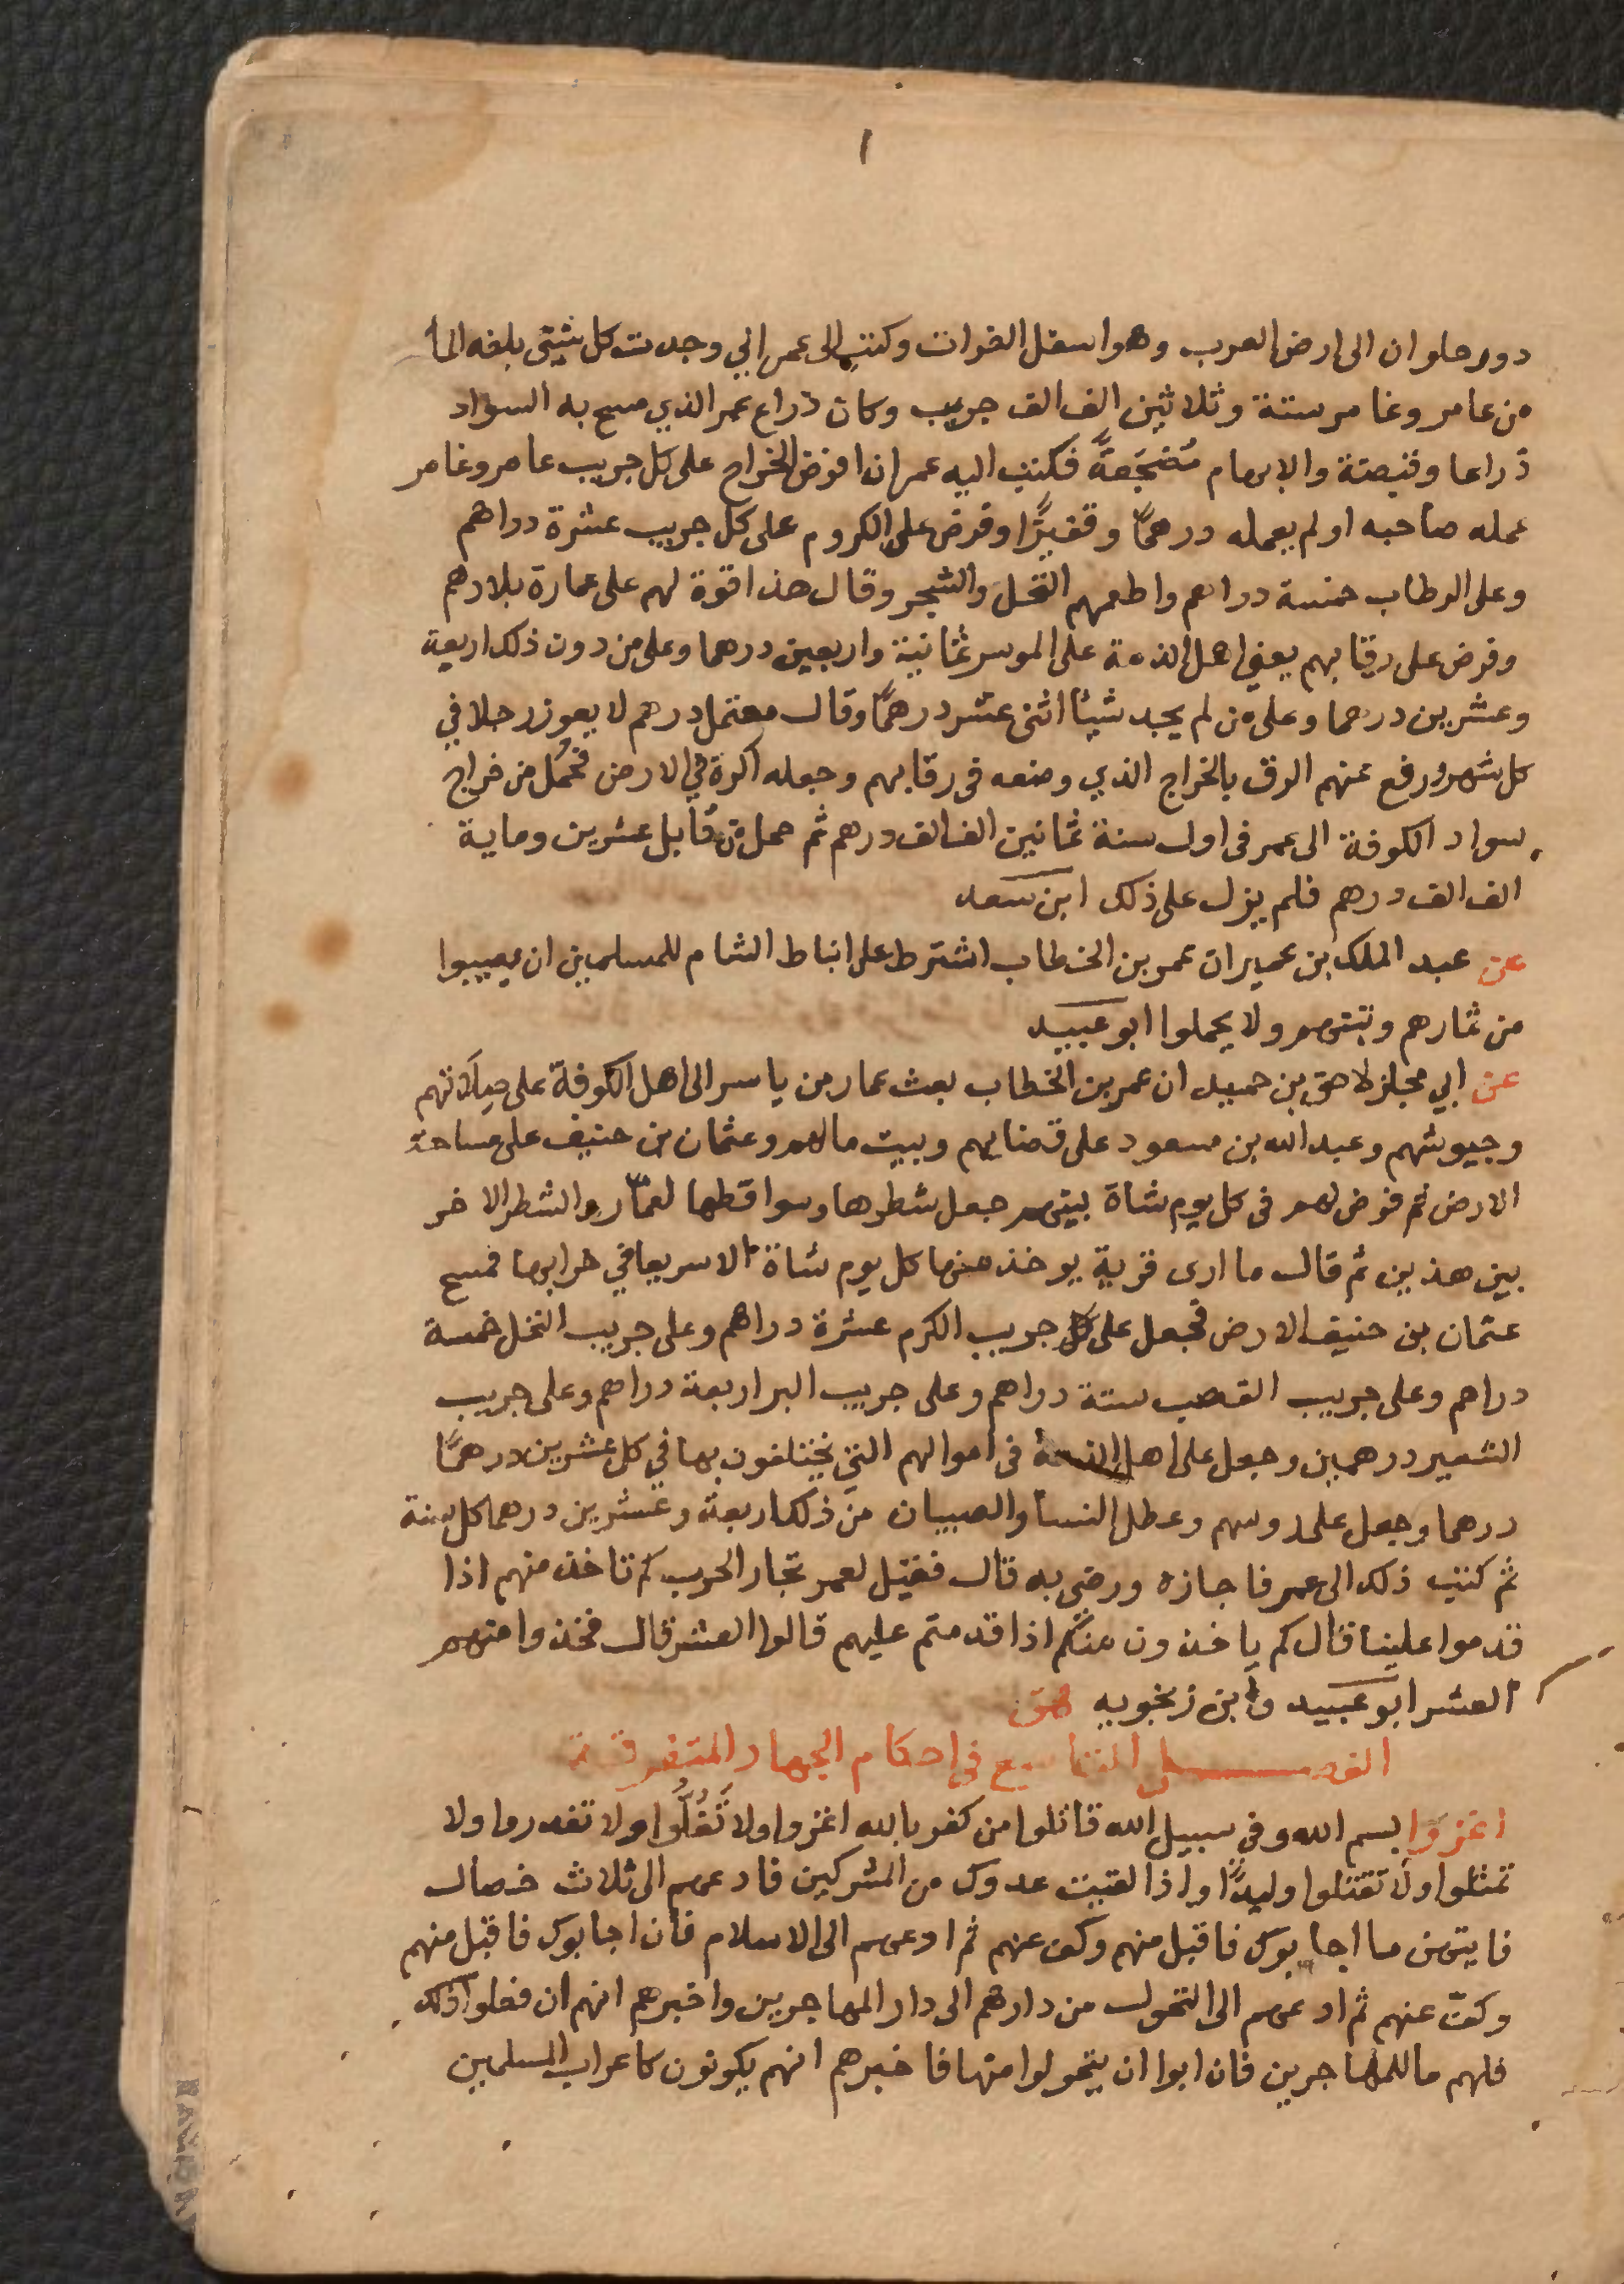 ١
دون حلوان الى ارض العرب وهو اسفل الفرات وكتب الى عمر اني وجدت كل شيئ بلغه الماء
من عامر وغامر ستة وثلاثين الف الف جريب وكان ذراع عمر الذي مسح به السواد
ذراعا وقبضة والابهام مُضجَعةً فكتب اليه عمر ان افرض الخراج على كل جريب عامر وغامر
عمله صاحبه او لم يعمله درهمًا وقفيزًا وفرض على الكروم على كل جريب عشرة دراهم
وعلى الرطاب خمسة دراهم واطعمهم النخل والشجر وقال هذا قوة لهم على عمارة بلادهم
وفرض على رقابهم يعني اهل الذمة على الموسر ثمانية واربعين درهما وعلى من دون ذلك اربعة
وعشرين درهما وعلى من لم يجد شيئًا اثنى عشر درهمًا وقال معتمل درهم لا يعوز رجلا في
كل شهر ورفع عنهم الرق بالخراج الذي وضعه في رقابهم وجعله اكرة في الارض فحُمل من خراج
سواد الكوفة الى عمر في اول سنة ثمانين الف الف درهم ثم حمل من قابل عشرين وماية
الف الف درهم فلم يزل على ذلك ابن سعد
عن عبد الملك بن عمير ان عمر بن الخطاب اشترط على انباط الشام للمسلمين ان يصيبوا
من ثمارهم وتبنهم ولا يحملوا ابو عبيد
عن ابي مجلز لاحق بن حميد ان عمر بن الخطاب بعث عمار بن ياسر الى اهل الكوفة على صلاتهم
وجيوشهم وعبد الله بن مسعود على قضايهم وبيت مالهم وعثمان بن حنيف على مساحة
الارض ثم فرض لهم في كل يوم شاة بينهم جعل شطرها وسواقطها لعمّار والشطر الاخر
بين هذين ثم قال ما ارى قرية يوخذ منها كل يوم شاة الا سريعا في خرابها فمسح
عثمان بن حنيف الارض فجعل على كل جريب الكرم عشرة دراهم وعلى جريب النخل خمسة
دراهم وعلى جريب القصب ستة دراهم وعلى جريب البر اربعة دراهم وعلى جريب
الشعير درهمين وجعل على اهل الذمة في اموالهم التي يختلفون بها في كل عشرين درهمًا
درهما وجعل على روسهم وعطل النسا والصبيان من ذلك اربعة وعشرين درهما كل سنة
ثم كتب ذلك الى عمر فاجازه ورضى به قال فقيل لعمر تجار الحرب كم تاخذ منهم اذا
قدموا علينا قال كم ياخذون منكم اذا قدمتم عليهم قالوا العشر قال فخذوا منهم
العشر ابو عبيد وابن زنجويه هق
الفصل التاسع في احكام الجهاد المتفرقة
اغزوا بسم الله وفي سبيل الله قاتلوا من كفر بالله اغزوا ولا تَغُلُّوا ولا تغدروا ولا
تمثلوا ولا تقتلوا وليدًا واذا لقيت عدوك من المشركين فادعهم الى ثلاث خصال
فايتهن ما اجابوك فاقبل منهم وكف عنهم ثم ادعهم الى الاسلام فان اجابوك فاقبل منهم
وكفّ عنهم ثم ادعهم الى التحول من دارهم الى دار المهاجرين واخبرهم انهم ان فعلوا ذلك
فلهم ما للمهاجرين فان ابوا ان يتحولوا منها فاخبرهم انهم يكونون كاعراب المسلمين